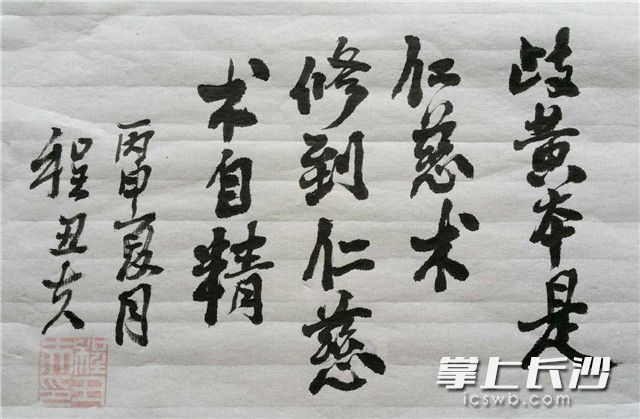 歧黄本是
仁慈术
修到仁慈
术自精
丙申夏月
程丑夫
掌上长沙
icswb.com